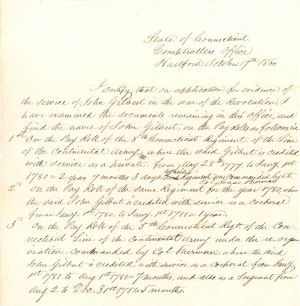 State of Connecticut
Comptrollers Office
Hartford October 7th
I certify that on application for evidence of
the service of John Gilbert in the war of the Revolution, I
have examined the documents remaining in this office, and
find the name of John Gilbert, on the Pay Rolls as follows viz
1st On the Pay Roll of the 8th Connecticut Regiment of the Line
of the Continental Army, where the said Gilbert is credited
with service as a private from May 28th 1777 to Jany 1st
1780 = 2 year 7 months 3 days
2d On the Pay Roll of the same Regiment for the year 1780, where
the said John Gilbert is credited with service as a corporal
from Jany 1st 1780 to Jany 1st 1781 = 1 year
3d On the Pay Roll of the 5th Connecticut Regt of the Con-
necticut Line of the Continental Army under the re organi-
zation, commanded by Col Sherman, where the said
John Gilbert is credited with service as a corporal from Jany
1st 1781 to Aug 1st 1781 = 7 months, and also as a Sergeant from
Aug 2 to Dec. 31st 1781 = 5 months